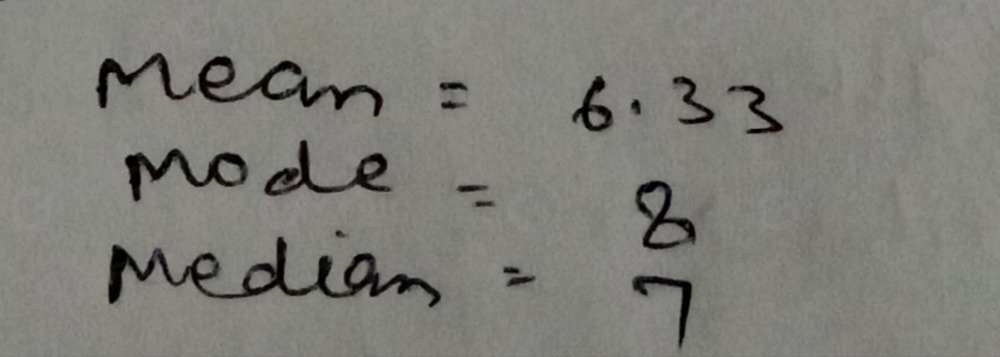 Mean = 6.33
Mode = 8
Median = 7